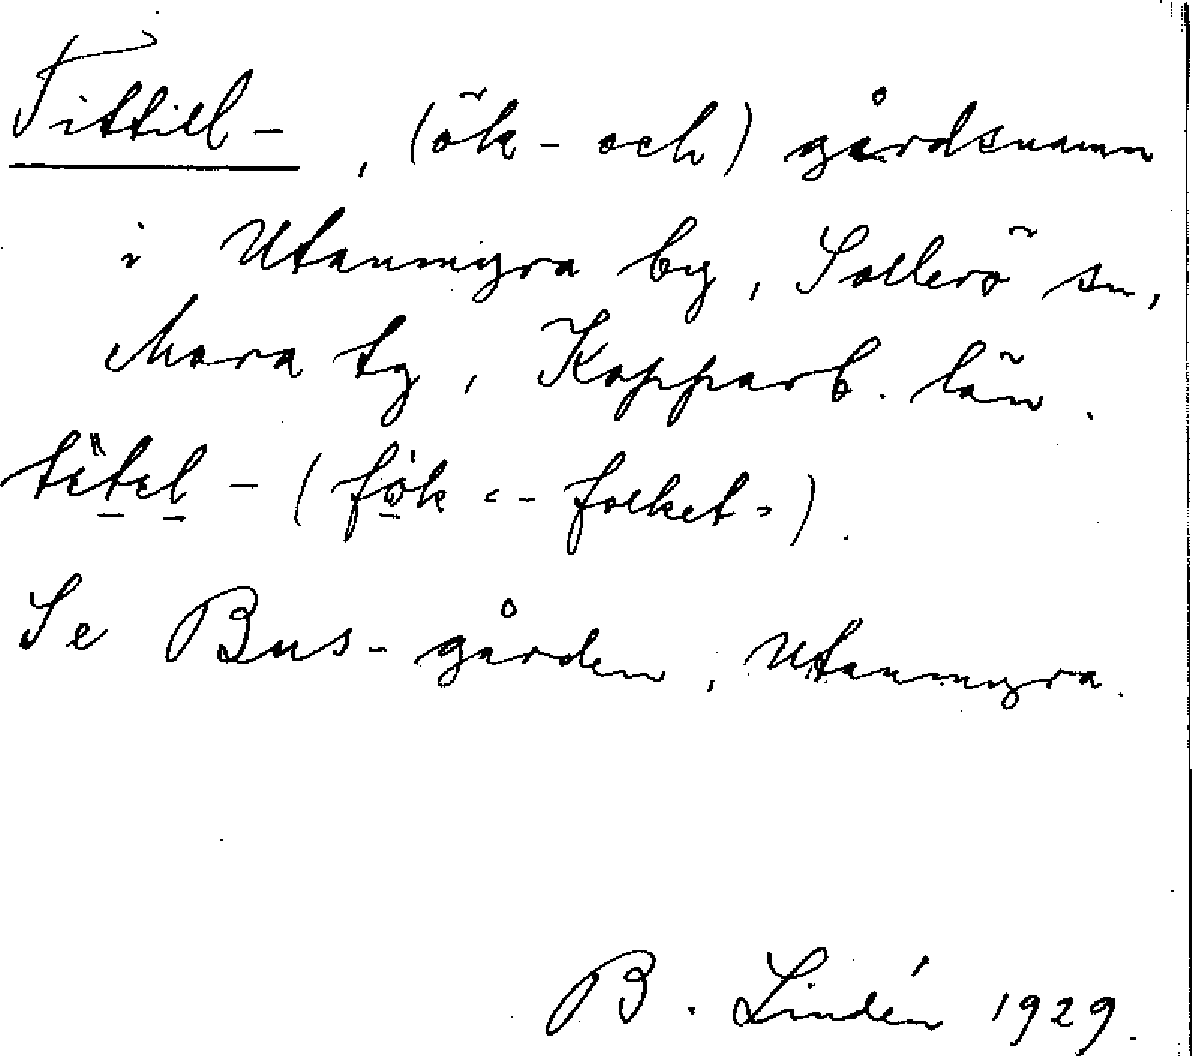 Tittill-, (ök- och) gårdsnamn
i Utanmyra by, Sollerö sn,
Mora tg, Kopparb. län.
tẗtel - (fok = - folket =).
Se Bus-gården, Utanmyra.
B. Lindén 1929.